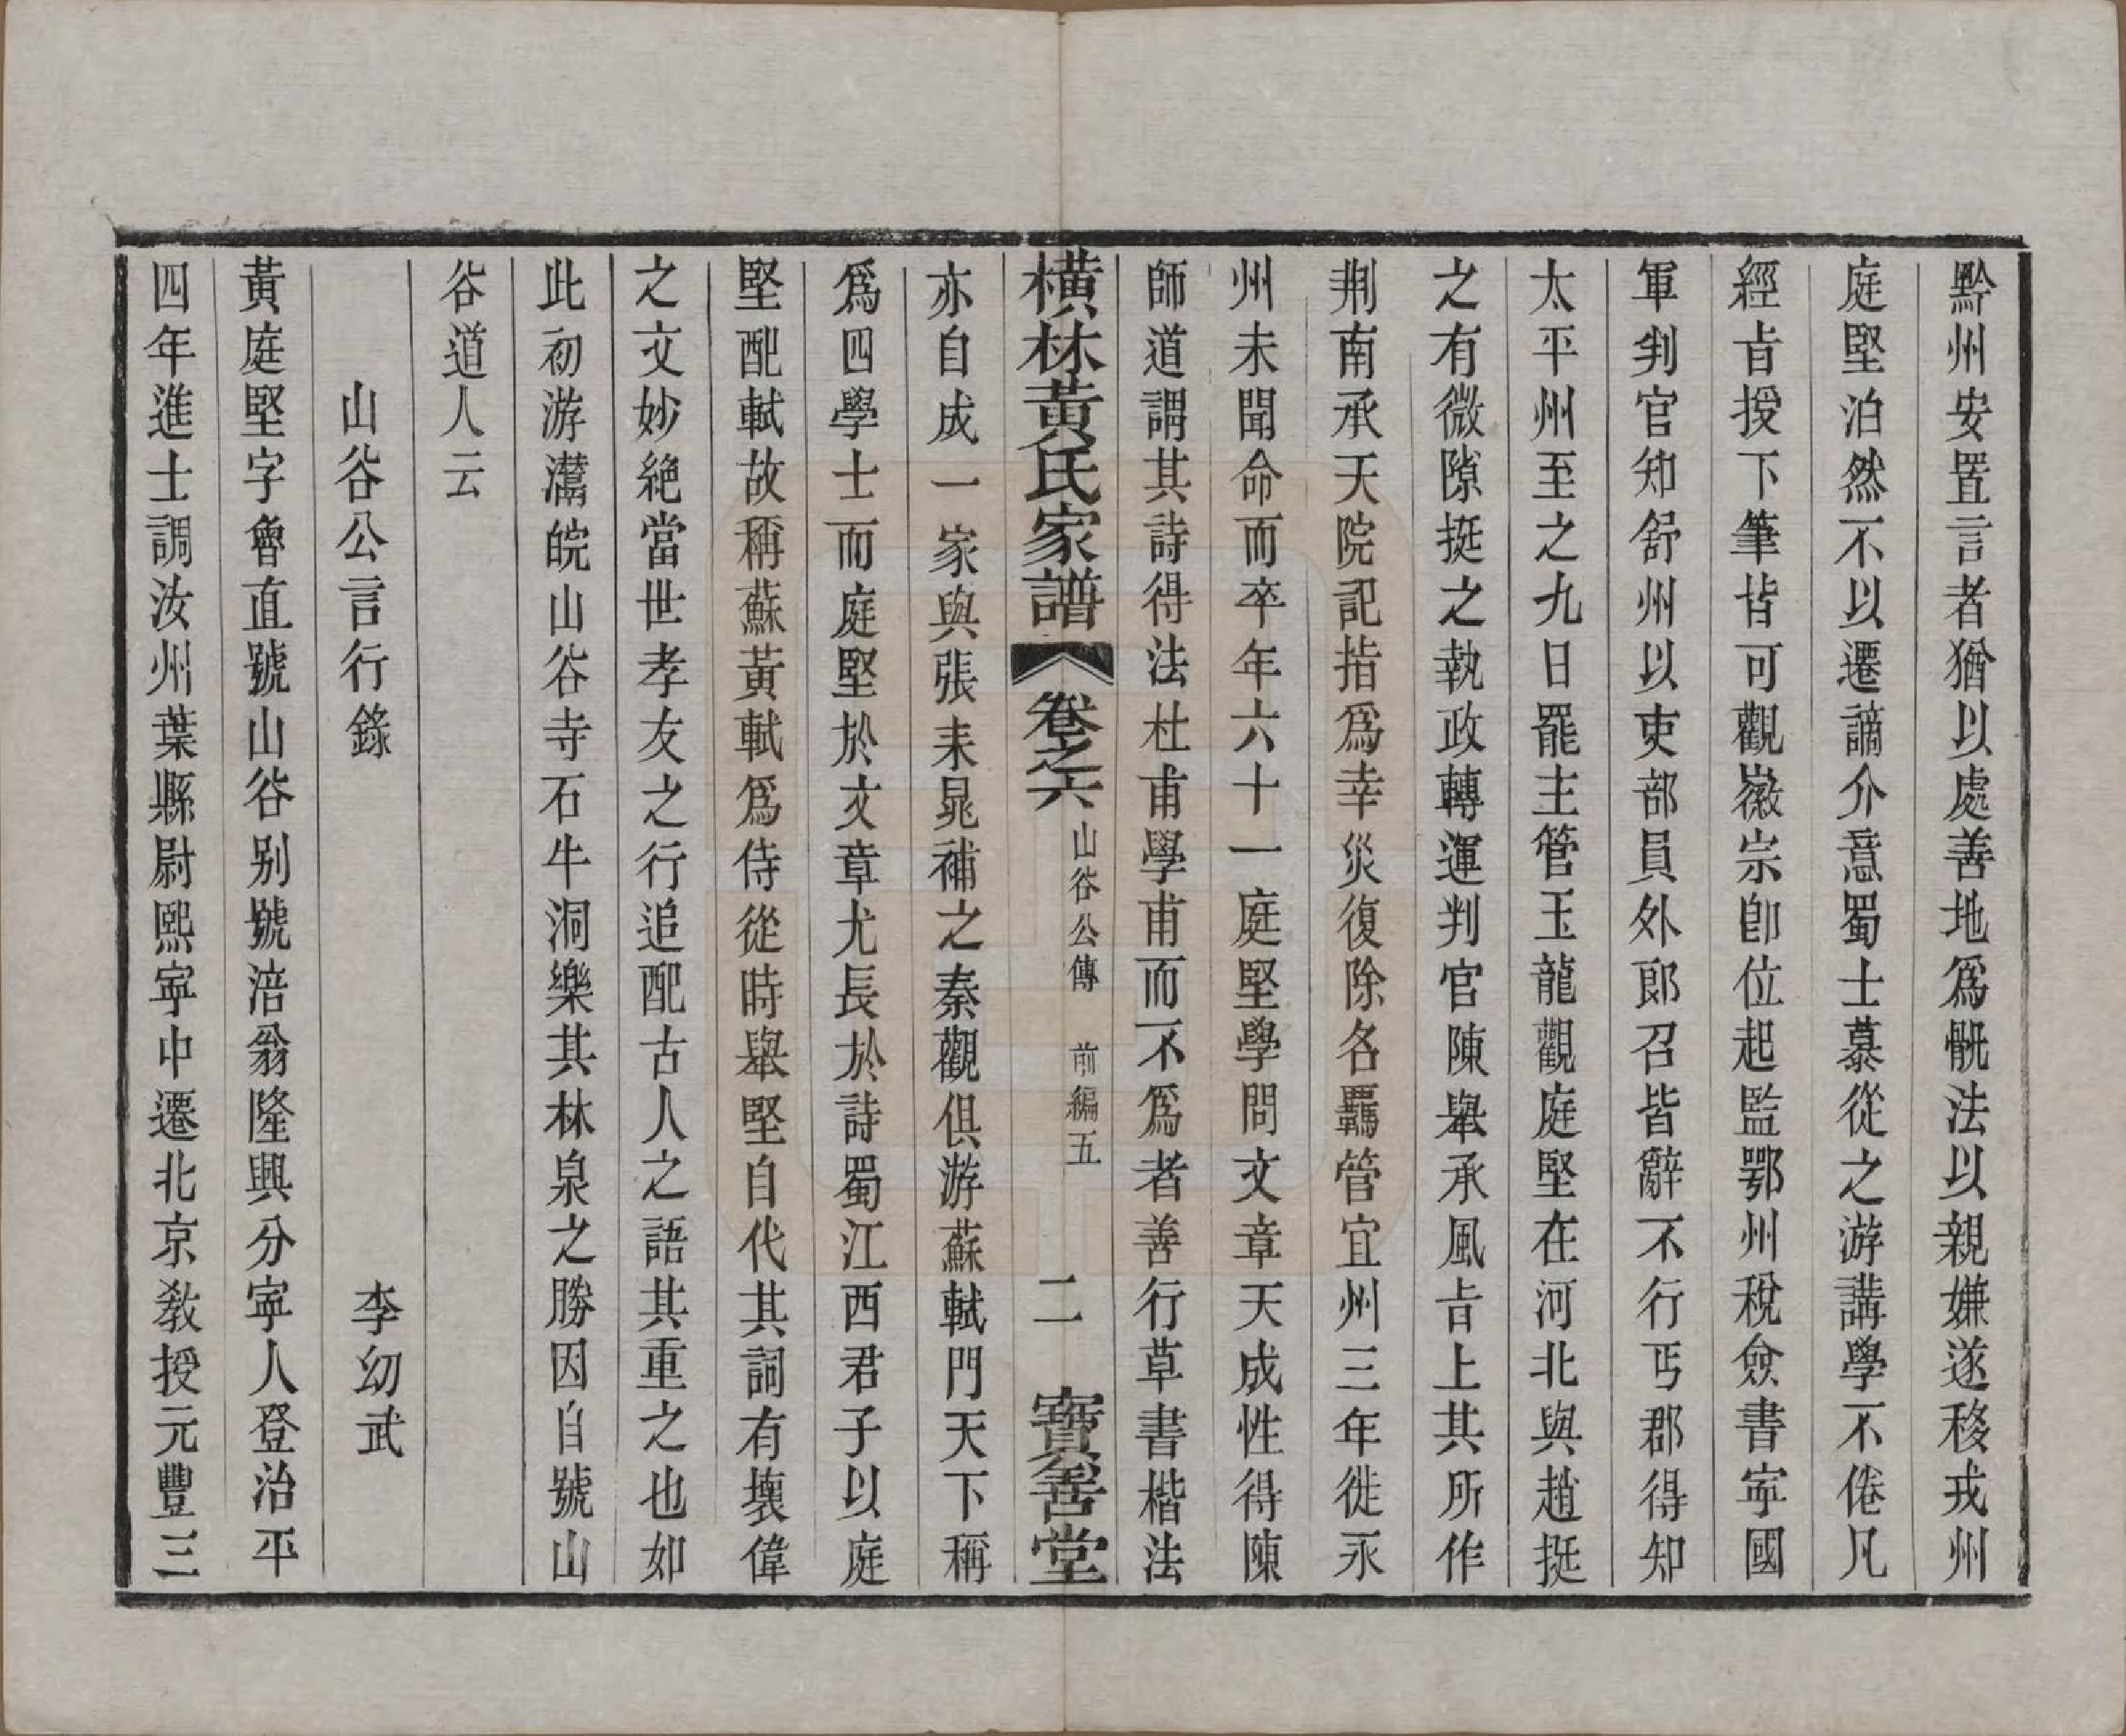 黔州安置言者猶以處善地爲骫法以親嫌遂移戎州
庭堅泊然不以遷謫介意蜀士慕從之游講學不倦凡
經㫖授下筆皆可觀徽宗卽位起監鄂州稅僉書寧國
軍判官知舒州以吏部員外郞召皆辭不行丐郡得知
太平州至之九日罷主管玉龍觀庭堅在河北與趙挺
之有微隙挺之執政轉運判官陳舉承風㫖上其所作
荆南承天院記指爲幸災復除名羈管宜州三年徙永
州未聞命而卒年六十一庭堅學問文章天成性得陳
師道謂其詩得法杜甫學甫而不爲者善行草書楷法
橫林黃氏家譜 卷之六 山谷公傳 前編五 二 寶善堂
亦自成一家與張耒晁補之秦觀俱游蘇軾門天下稱
爲四學士而庭堅於文章尤長於詩蜀江西君子以庭
堅配軾故稱蘇黃軾爲侍從時舉堅自代其詞有壞偉
之文妙絕當世孝友之行追配古人之語其重之也如
此初游灊皖山谷寺石牛洞樂其林泉之勝因自號山
谷道人云
山谷公言行錄 李幼武
黃庭堅字魯直號山谷别號涪翁隆興分寧人登治平
四年進士調汝州葉縣尉熙寧中遷北京教授元豐三